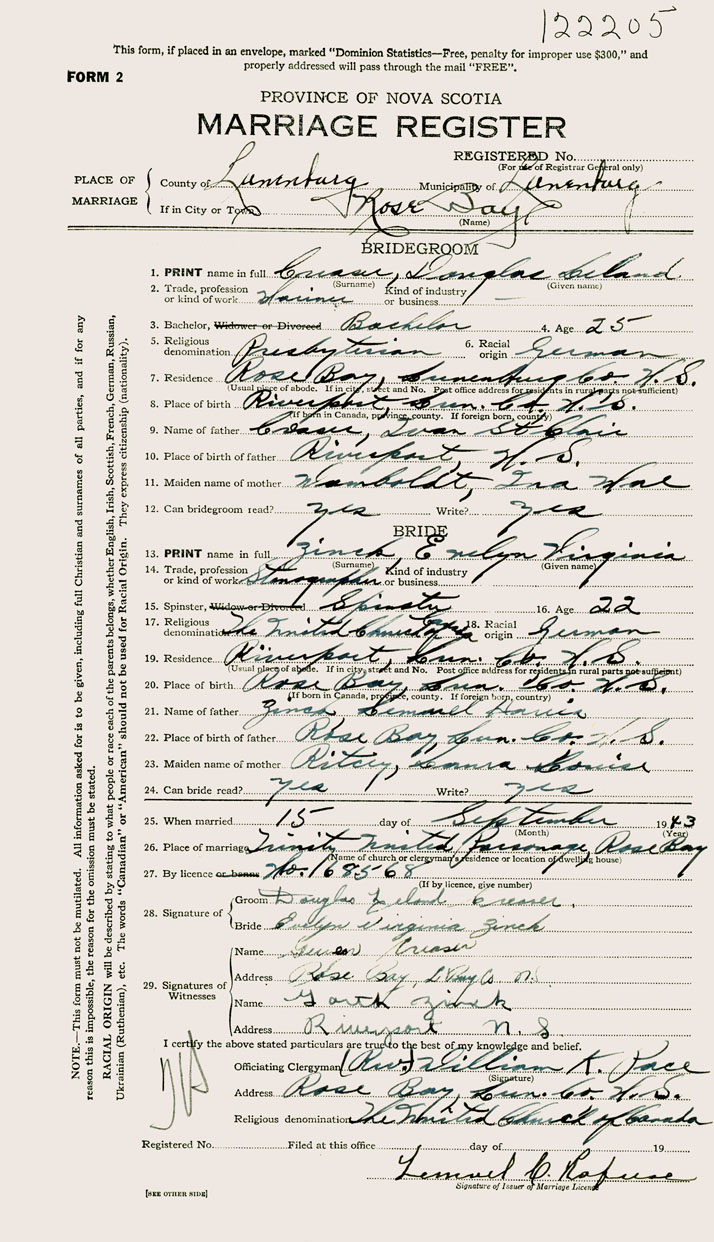 122205
This form, if placed in an envelope, marked “Dominion Statistics—Free, penalty for improper use $300,” and
properly addressed will pass through the mail “FREE”.
FORM 2
PROVINCE OF NOVA SCOTIA
MARRIAGE REGISTER
REGISTERED No.
(For use of Registrar General only)
PLACE OF MARRIAGE
County of Lunenburg Municipality of Lunenburg
If in City or Town Rose Bay
(Name)
BRIDEGROOM
1. PRINT name in full Creaser, Douglas Leland
(Surname) (Given name)
2. Trade, profession or kind of work Mariner Kind of industry or business —
3. Bachelor, Widower or Divorced Bachelor 4. Age 25
5. Religious denomination Presbyterian 6. Racial origin German
7. Residence Rose Bay, Lunenburg Co. N.S.
(Usual place of abode. If in city, street and No. Post office address for residents in rural parts not sufficient)
8. Place of birth Riverport, Lun. Co. N.S.
(If born in Canada, province, county. If foreign born, country)
9. Name of father Creaser, Ivan St Clair
10. Place of birth of father Riverport, N.S.
11. Maiden name of mother Wamboldt, Ina Mae
12. Can bridegroom read? yes Write? yes
BRIDE
13. PRINT name in full Zinck, Evelyn Virginia
(Surname) (Given name)
14. Trade, profession or kind of work Stenographer Kind of industry or business
15. Spinster, Widow or Divorced Spinster 16. Age 22
17. Religious denomination The United Church 18. Racial origin German
19. Residence Riverport, Lun. Co. N.S.
(Usual place of abode. If in city, street and No. Post office address for residents in rural parts not sufficient)
20. Place of birth Rose Bay, Lun. Co. N.S.
(If born in Canada, province, county. If foreign born, country)
21. Name of father Zinck Lemuel Harris
22. Place of birth of father Rose Bay, Lun. Co. N.S.
23. Maiden name of mother Ritcey, Laura Louise
24. Can bride read? yes Write? yes
25. When married 15 day of September 1943
(Month) (Year)
26. Place of marriage Trinity United Parsonage, Rose Bay
(Name of church or clergyman's residence or location of dwelling house)
27. By licence or banns No. 168568
(If by licence, give number)
28. Signature of
Groom Douglas Leland Creaser.
Bride Evelyn Virginia Zinck
29. Signatures of Witnesses
Name Creaser
Address Rose Bay, N.S.
Name Garth Zinck
Address Riverport N.S.
I certify the above stated particulars are true to the best of my knowledge and belief.
Officiating Clergyman (Rev.) William K. Pace
(Signature)
Address Rose Bay, Lun. Co. N.S.
Religious denomination The United Church of Canada
Registered No. Filed at this office day of 19
Lemuel C. Rafuse
Signature of Issuer of Marriage Licence
[SEE OTHER SIDE]
NOTE.—This form must not be mutilated. All information asked for is to be given, including full Christian and surnames of all parties, and if for any
reason this is impossible, the reason for the omission must be stated.
RACIAL ORIGIN will be described by stating to what people or race each of the parents belongs, whether English, Irish, Scottish, French, German, Russian,
Ukrainian (Ruthenian), etc. The words “Canadian” or “American” should not be used for Racial Origin. They express citizenship (nationality).